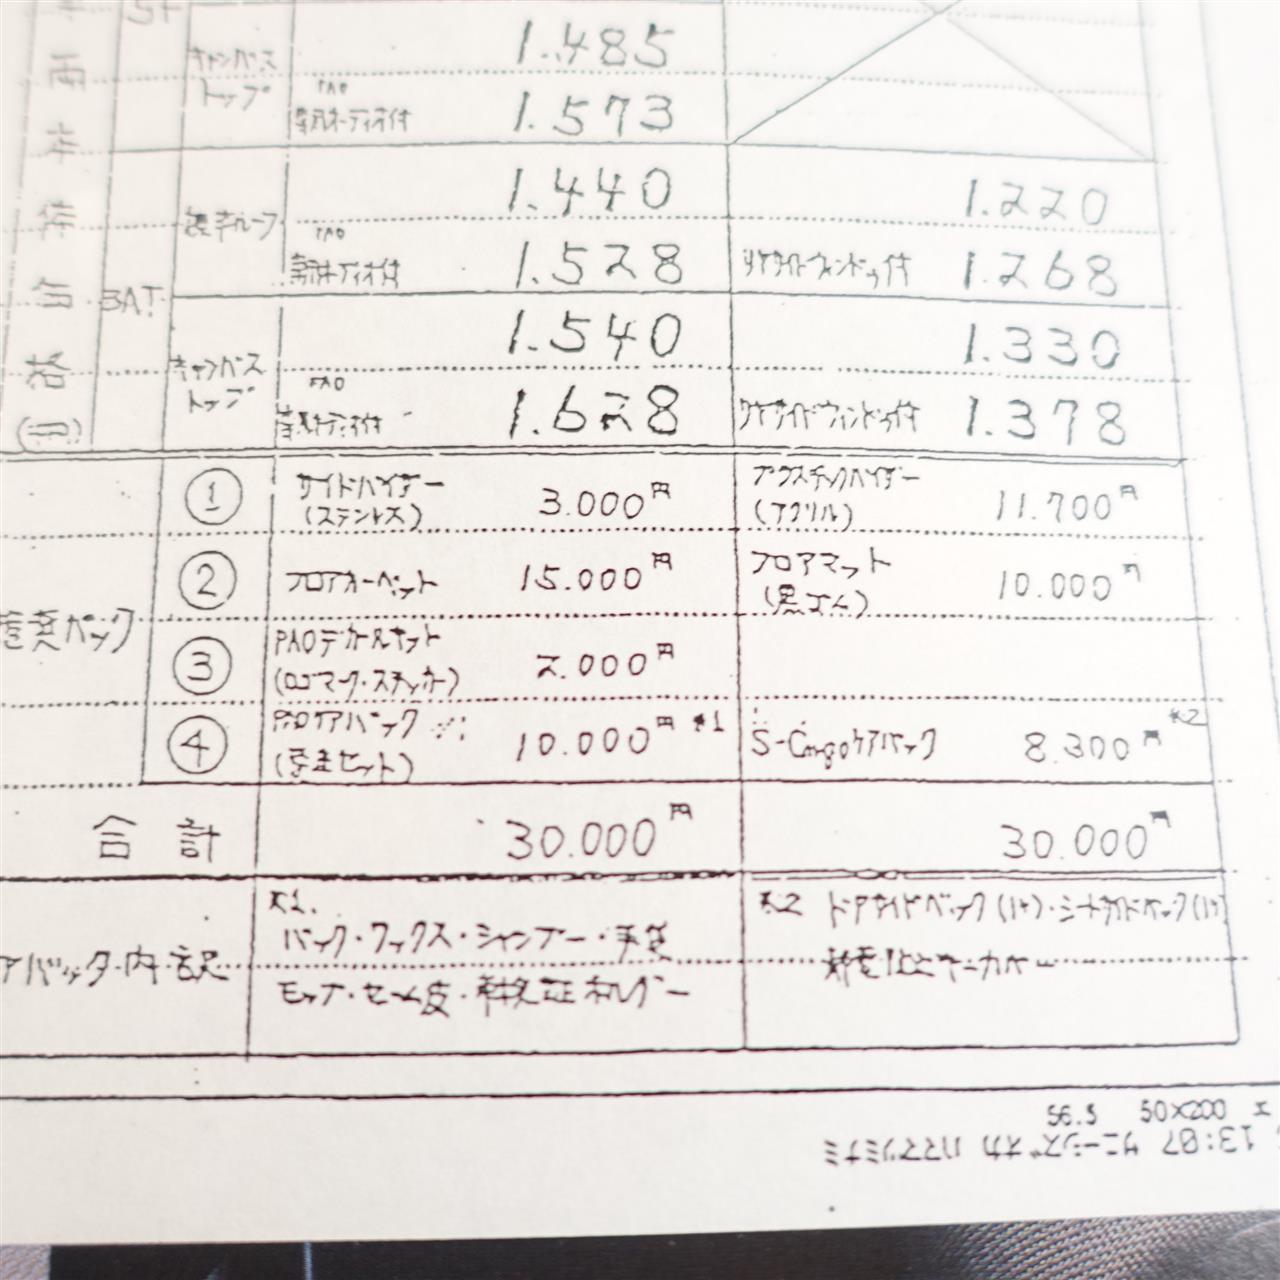 両
本
体
価
格
(円)
5F
キャンバス
トップ
1.485
PAO
専用オーディオ付
1.573
3AT
標準ルーフ
1.440
1.220
PAO
専用オーディオ付
1.528
リヤサイドウィンドゥ付
1.268
キャンバス
トップ
1.540
1.330
PAO
専用オーディオ付
1.628
リヤサイドウィンドゥ付
1.378
推奨パック
① サイドバイザー
(ステンレス)
3.000円
プラスチックバイザー
(アクリル)
11.700円
② フロアカーペット
15.000円
フロアマット
(黒ゴム)
10.000円
③ PAOデカールキット
(ロゴマーク・ステッカー)
2.000円
④ PAOケアパック
10.000円 *1
S-Cargoケアパック
8.300円 *2
合計
30.000円
30.000円
アパック内訳
*1.
バック・ワックス・シャンプー・手袋
モップ・セーム皮・車検証ホルダー
*2 ドアサイドバック(1ケ)・シートサイドバック(1ケ)
静電
キーカバー
56.5 50×200
13:07 サニーシズオカ ハママツミナミ